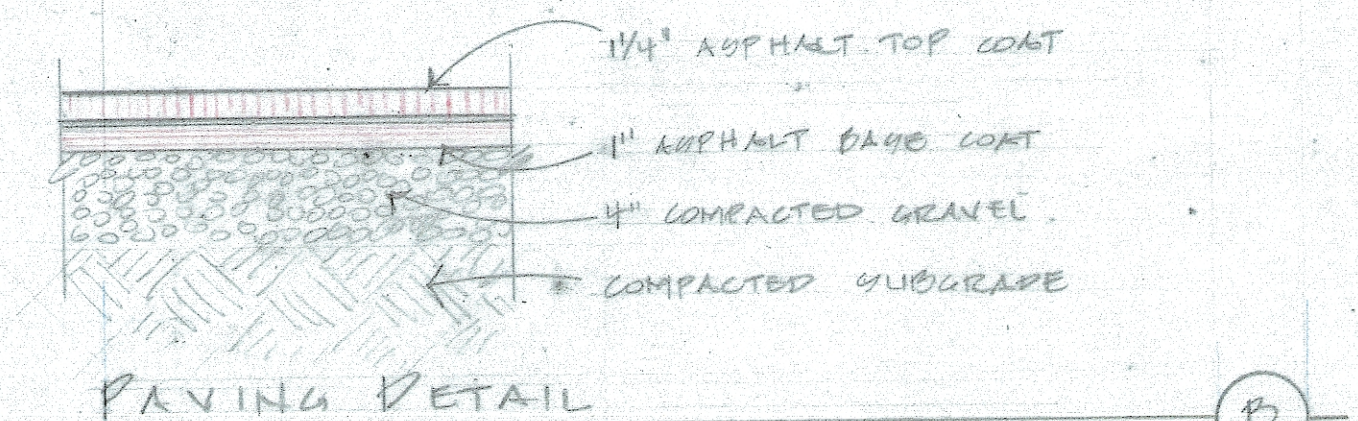 1 1/4" ASPHALT TOP COAT
1" ASPHALT BASE COAT
4" COMPACTED GRAVEL
COMPACTED SUBGRADE
PAVING DETAIL
B